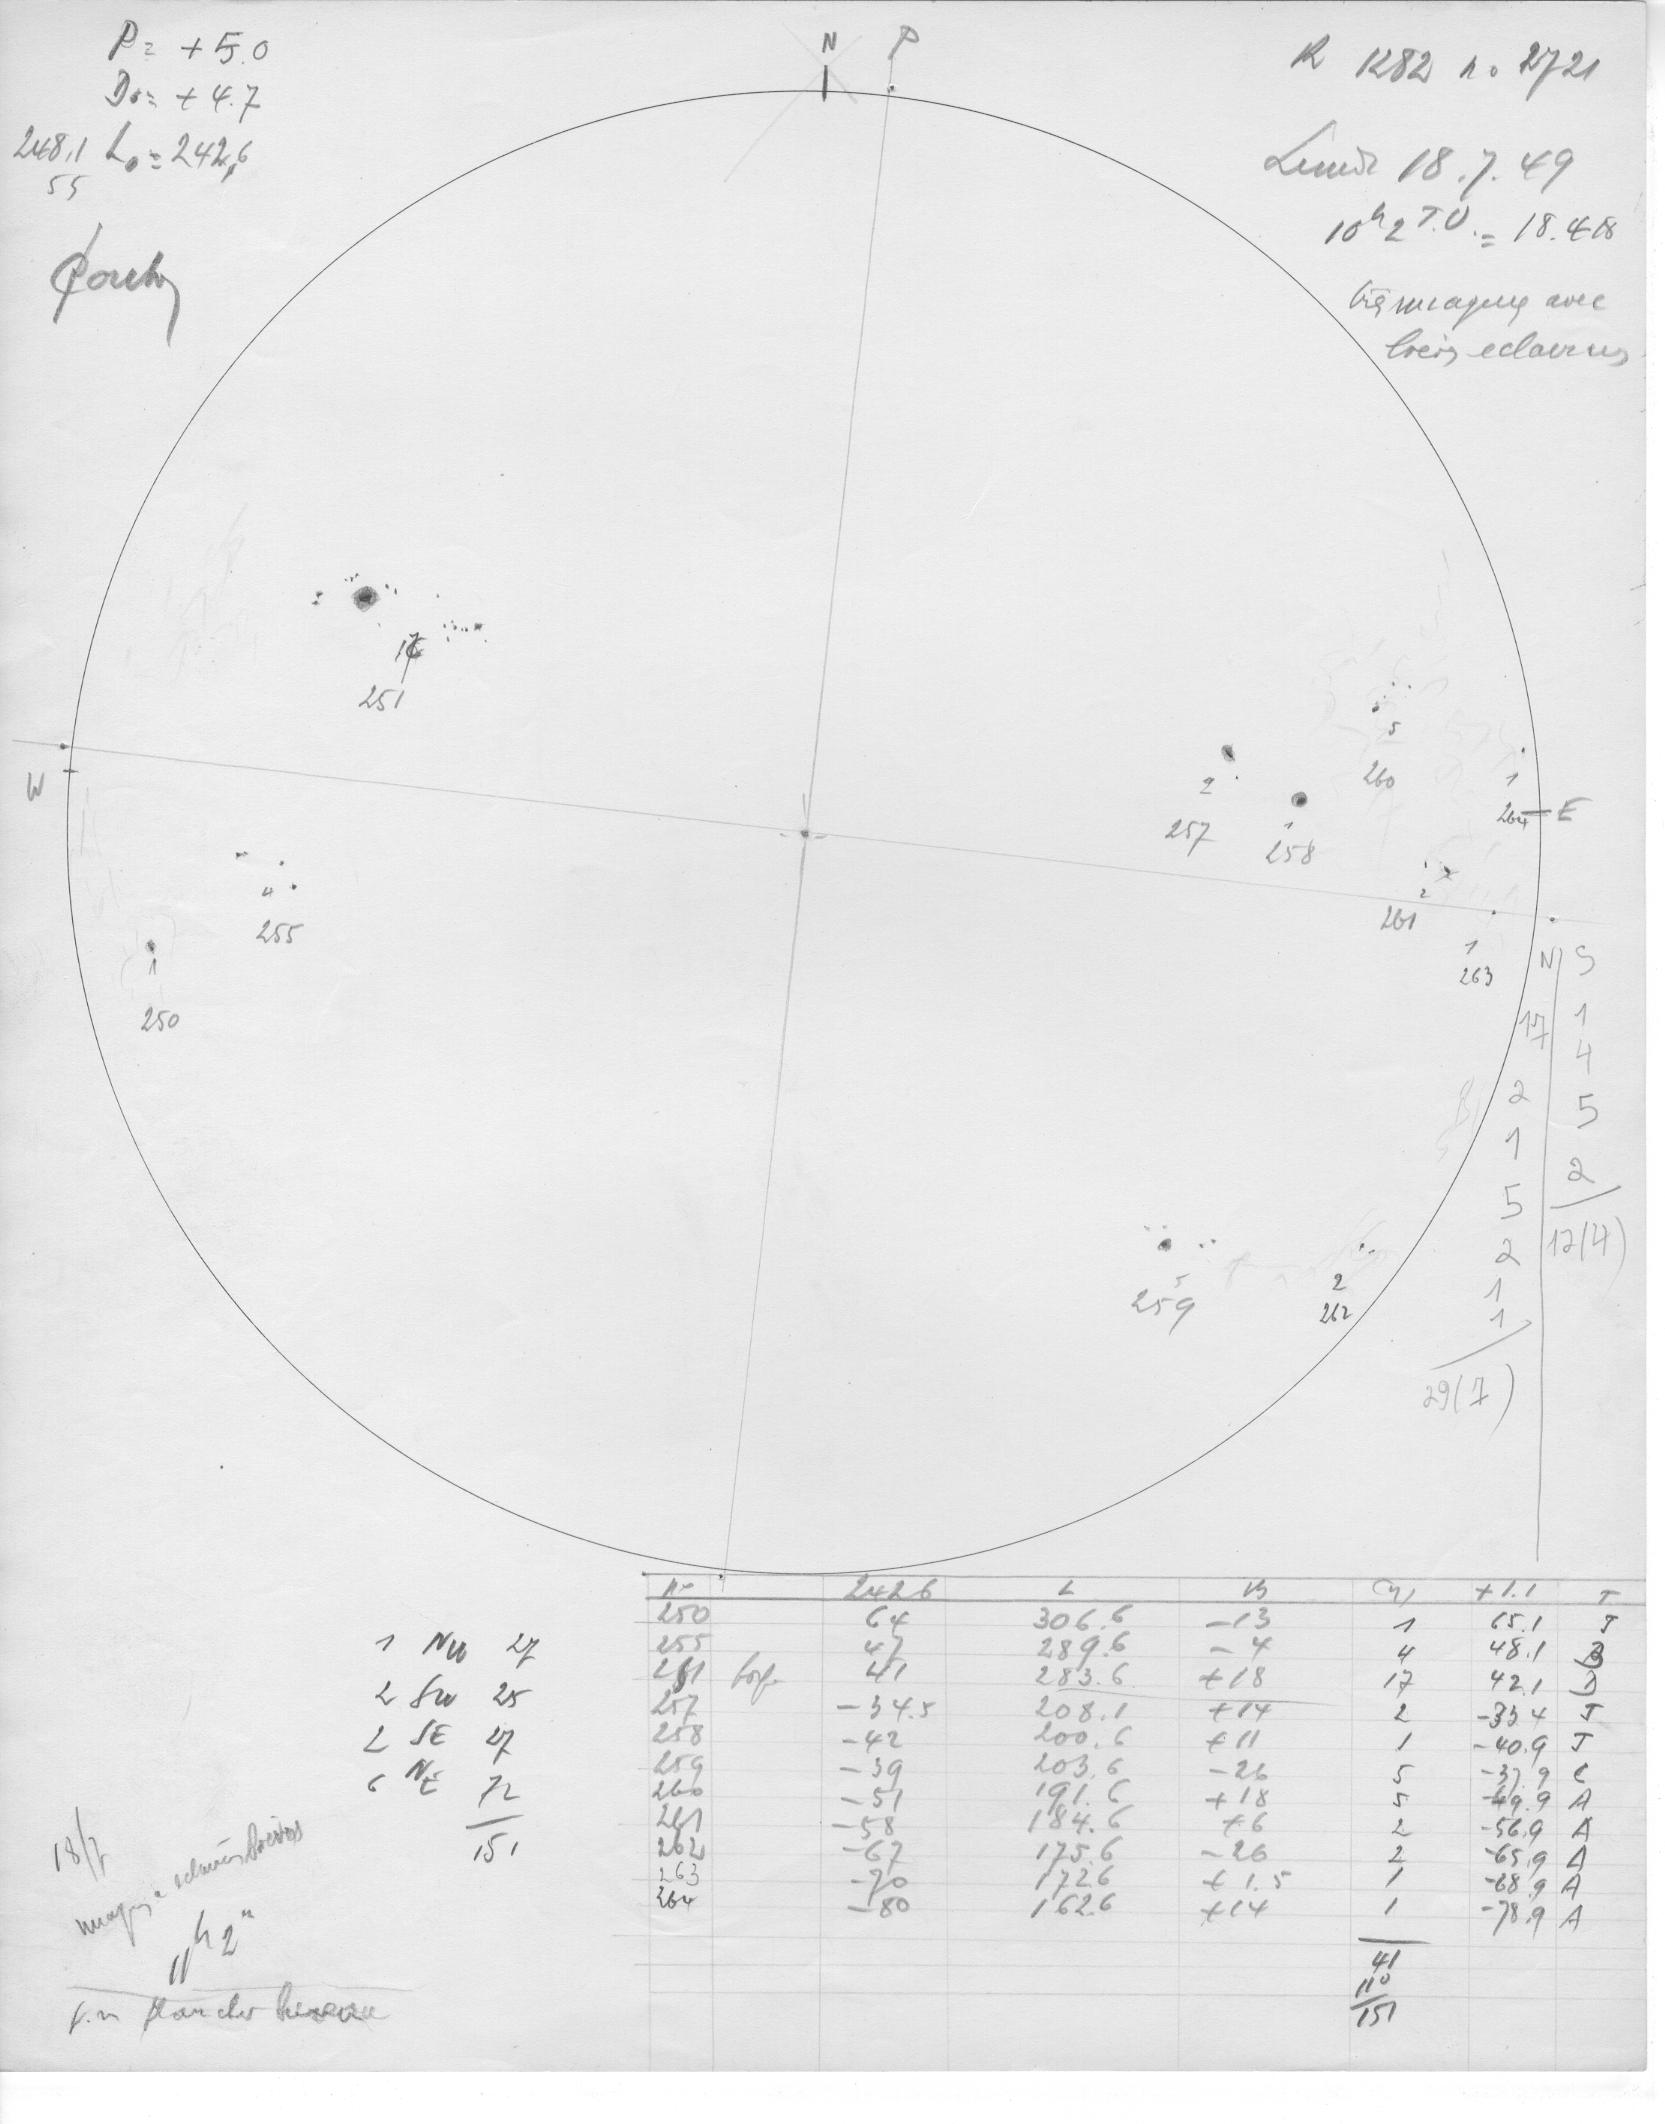 P= +5.0
Do= +4.7
248.1 Lo=242,6
55
N P
R 1282 no 2721
Lundi 18.7.49
10h2 T.U. = 18.418
avec
17
251
W
4
255
1
250
2
257
1
258
5
260
1
264 E
2
261
1
263
5
259
2
262
N S
17 1
4
2 5
1 2
5 12(4)
2
1
1
29(7)
1 NW 27
2 SW 25
2 SE 27
6 NE 72
151
18/7
"h2"
No 242.6 L B +1.1 T
250 64 306.6 -13 1 65.1 J
255 47 289.6 -4 4 48.1 B
251 41 283.6 +18 17 42.1 D
257 -34.5 208.1 +14 2 -33.4 J
258 -42 200.6 +11 1 -40.9 J
259 -39 203.6 -26 5 -37.9 C
260 -51 191.6 +18 5 -49.9 A
261 -58 184.6 +6 2 -56.9 A
262 -67 175.6 -26 2 -65.9 A
263 -70 172.6 +1.5 1 -68.9 A
264 -80 162.6 +14 1 -78.9 A
41
110
151